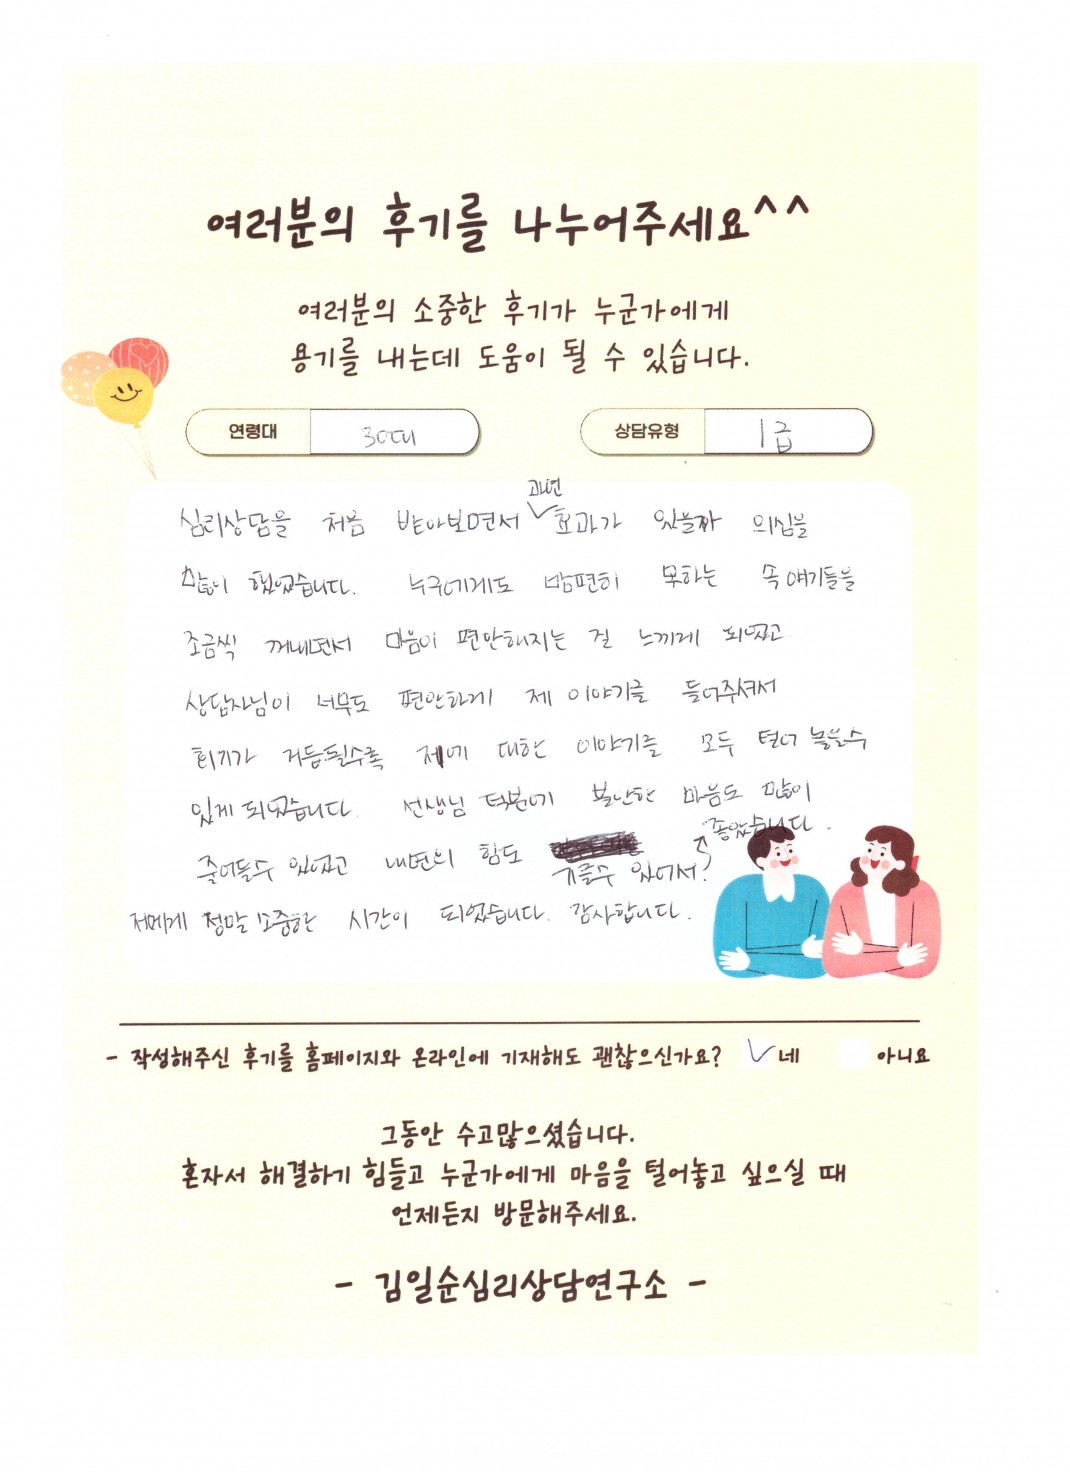 여러분의 후기를 나누어주세요^^
여러분의 소중한 후기가 누군가에게
용기를 내는데 도움이 될 수 있습니다.
연령대 30대 상담유형 1급
과연
심리상담을 처음 받아보면서 ✓효과가 있을까 의심을
많이 했었습니다. 누구에게도 맘편히 못하는 속 얘기들을
조금씩 꺼내면서 마음이 편안해지는 걸 느끼게 되었고
상담사님이 너무도 편안하게 제 이야기를 들어주셔서
회기가 거듭될수록 제에 대한 이야기를 모두 털어 놓을수
있게 되었습니다. 선생님 덕분에 불안한 마음도 많이
좋았습니다.
줄어들수 있었고 내면의 힘도
키울수 있어서
저에게 정말 소중한 시간이 되었습니다. 감사합니다.
- 작성해주신 후기를 홈페이지와 온라인에 기재해도 괜찮으신가요? ✓ 네 아니요
그동안 수고많으셨습니다.
혼자서 해결하기 힘들고 누군가에게 마음을 털어놓고 싶으실 때
언제든지 방문해주세요.
- 김일순심리상담연구소 -